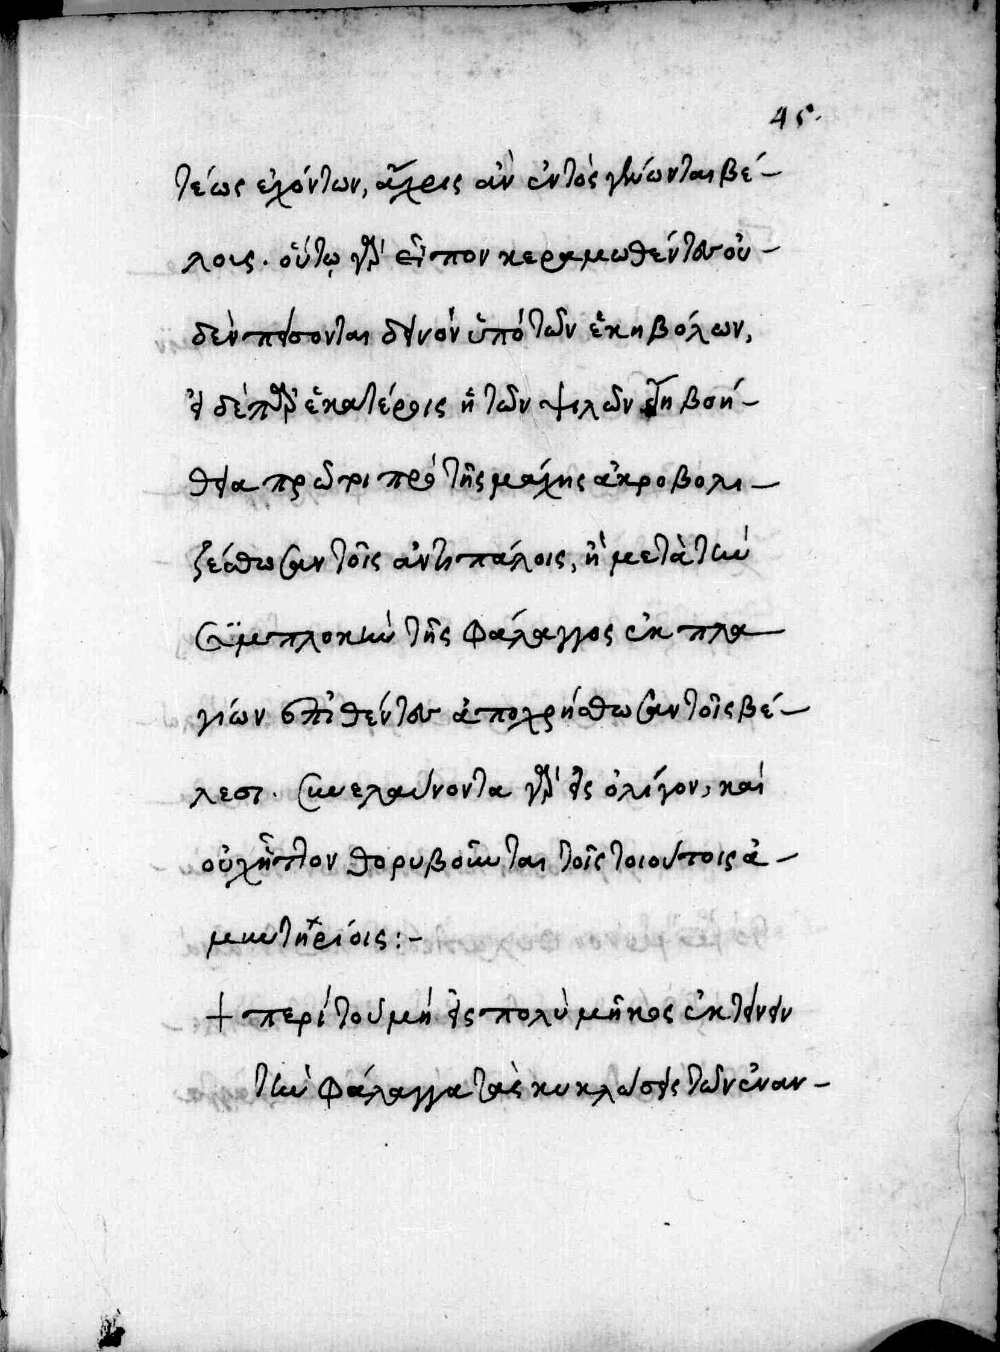 45.
τέως ἐχόντων, ἄχρις ἂν ἐντὸς γένωνται βέ-
λους. οὕτω γὰρ εἶπον κεραμωθέντες οὐ-
δὲν πείσονται δεινὸν ὑπὸ τῶν ἑκηβόλων,
εἰ δὲ παρ' ἑκατέροις ἡ τῶν ψιλῶν εἴη βοή-
θεια πρῶτοι πρὸ τῆς μάχης ἀκροβολι-
ζέσθωσαν τοῖς ἀντιπάλοις, ἢ μετὰ τὴν
συμπλοκὴν τῆς φάλαγγος ἐκ πλα-
γίων ἐπιθέντες ἀποχρήσθωσαν τοῖς βέ-
λεσι. συνελαύνονται γὰρ εἰς ὀλίγον, καὶ
οὐχ ἧττον θορυβοῦνται τοῖς τοιούτοις ἀ-
μυντηρίοις:-
+ περὶ τοῦ μὴ εἰς πολὺ μῆκος ἐκτείνειν
τὴν φάλαγγα τὰς κυκλώσεις τῶν ἐναν-